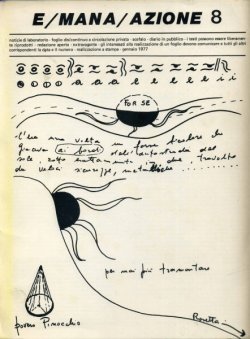 E/MANA/AZIONE 8
notizie di laboratorio - foglio discontinuo a circolazione privata - acefalo - diario in pubblico - i testi possono essere liberamen
te riprodotti - redazione aperta - extravagante - gli interessati alla realizzazione di un foglio devono comunicare a tutti gli altri
corrispondenti la data e il numero - realizzazione a stampa - gennaio 1977
a a e e e e i i
FORSE
c'era una volta un forno bicolore che
ai bordi dell'autostrada del
sole
da veloci metalliche
per mai più tramontare
povero Pinocchio
Rosetta